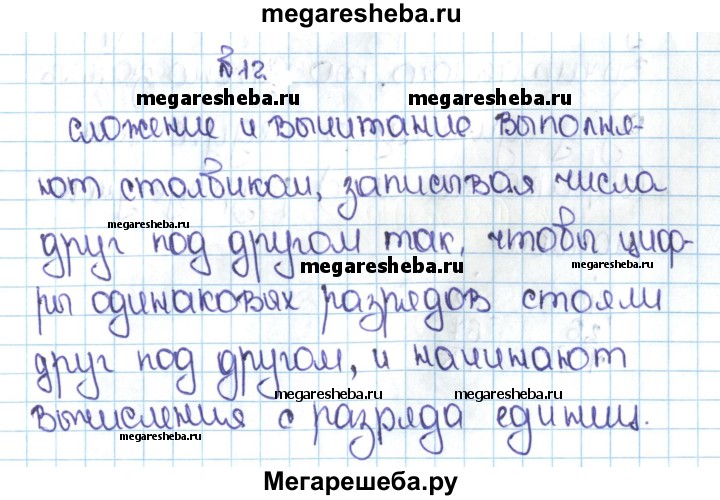 megaresheba.ru
№12
megaresheba.ru megaresheba.ru
сложение и вычитание выполня-
ют столбиком, записывая числа
megaresheba.ru megaresheba.ru
друг под другом так, чтобы циф-
megaresheba.ru megaresheba.ru
ры одинаковых разрядов стояли
друг под другом, и начинают
megaresheba.ru megaresheba.ru
вычисления с разряда единиц.
megaresheba.ru
Мегарешеба.ру